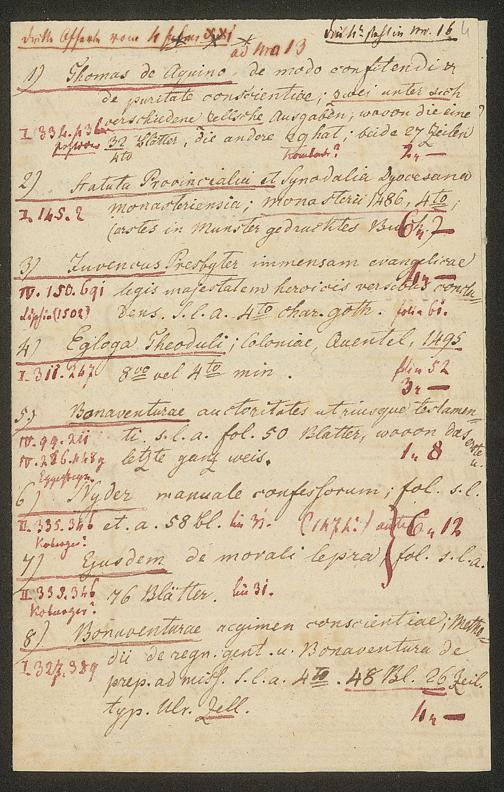 dritte Offerte vom 4
ad Nro 13
in Nr. 16
4
1) Thomas de Aquino, de modo confitendi &
de puritate conscientiae; zwei unter sich
verschiedene zeltsche Ausgaben, wovon die eine
I. 334. 436.
32 Blätter, die andere hat; beide 27 Zeilen
4to
2„—
2) Statuta Provincialia et Synodalia Dyocesana
I. 145. 2
monasteriensia; Monasterii 1486, 4to;
(erstes in Munster gedrucktes Buch.)
6„—
3) Juvencus Presbyter immensam evangelicae
4„—
IV. 150. 691
legis majestatem heroicis versibus conclu-
(1502)
dens. s. l. a. 4to char. goth. folia 61.
4) Egloga Theoduli; Coloniae, Quentel, 1495
I. 311. 247
8vo vel 4to min.
52
3„—
5) Bonaventurae auctoritates utriusque testamen-
IV. 99. 211
ti. s. l. a. fol. 50 Blätter, wovon das erste u.
IV. 286. 448g
letzte ganz weis.
1„ 8
6) Nyder manuale confessorum; fol. s. l.
II. 335. 346
et. a. 58 bl. lin 31.
6„ 12
Koburger?
7) Ejusdem de morali lepra fol. s. l. a.
II. 335. 346
76 Blätter. lin 31.
Koburger?
8) Bonaventurae regimen conscientiae;
I. 327. 389
dii de regn. gent. u. Bonaventura de
prep. ad miss. s. l. a. 4to. 48 Bl. 26 Zeil.
typ. Ulr. Zell.
4„—